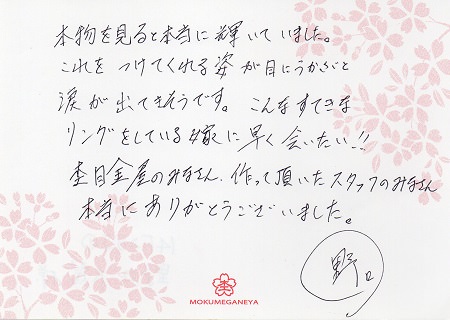 本物を見ると本当に輝いていました。
これをつけてくれる姿が目にうかぶと
涙が出てきそうです。こんなすてきな
リングをしている嫁に早く会いたい!!
杢目金屋のみなさん、作って頂いたスタッフのみなさん
本当にありがとうございました。
野口
杢
MOKUMEGANEYA